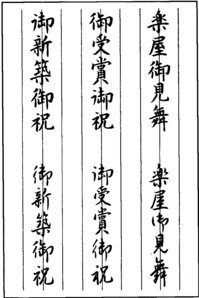 楽屋御見舞 楽屋御見舞
御受賞御祝 御受賞御祝
御新築御祝 御新築御祝